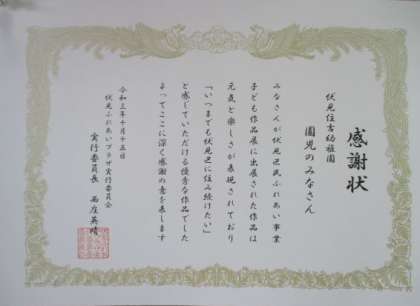 感謝状
伏見住吉幼稚園
園児のみなさん
みなさんが伏見区民ふれあい事業
子ども作品展に出展された作品は
元気と楽しさが表現されており
「いつまでも伏見区に住み続けたい」
と感じていただける優秀な作品でした
よってここに深く感謝の意を表します
令和三年十月十五日
伏見ふれあいプラザ実行委員会
実行委員長 西座英晴